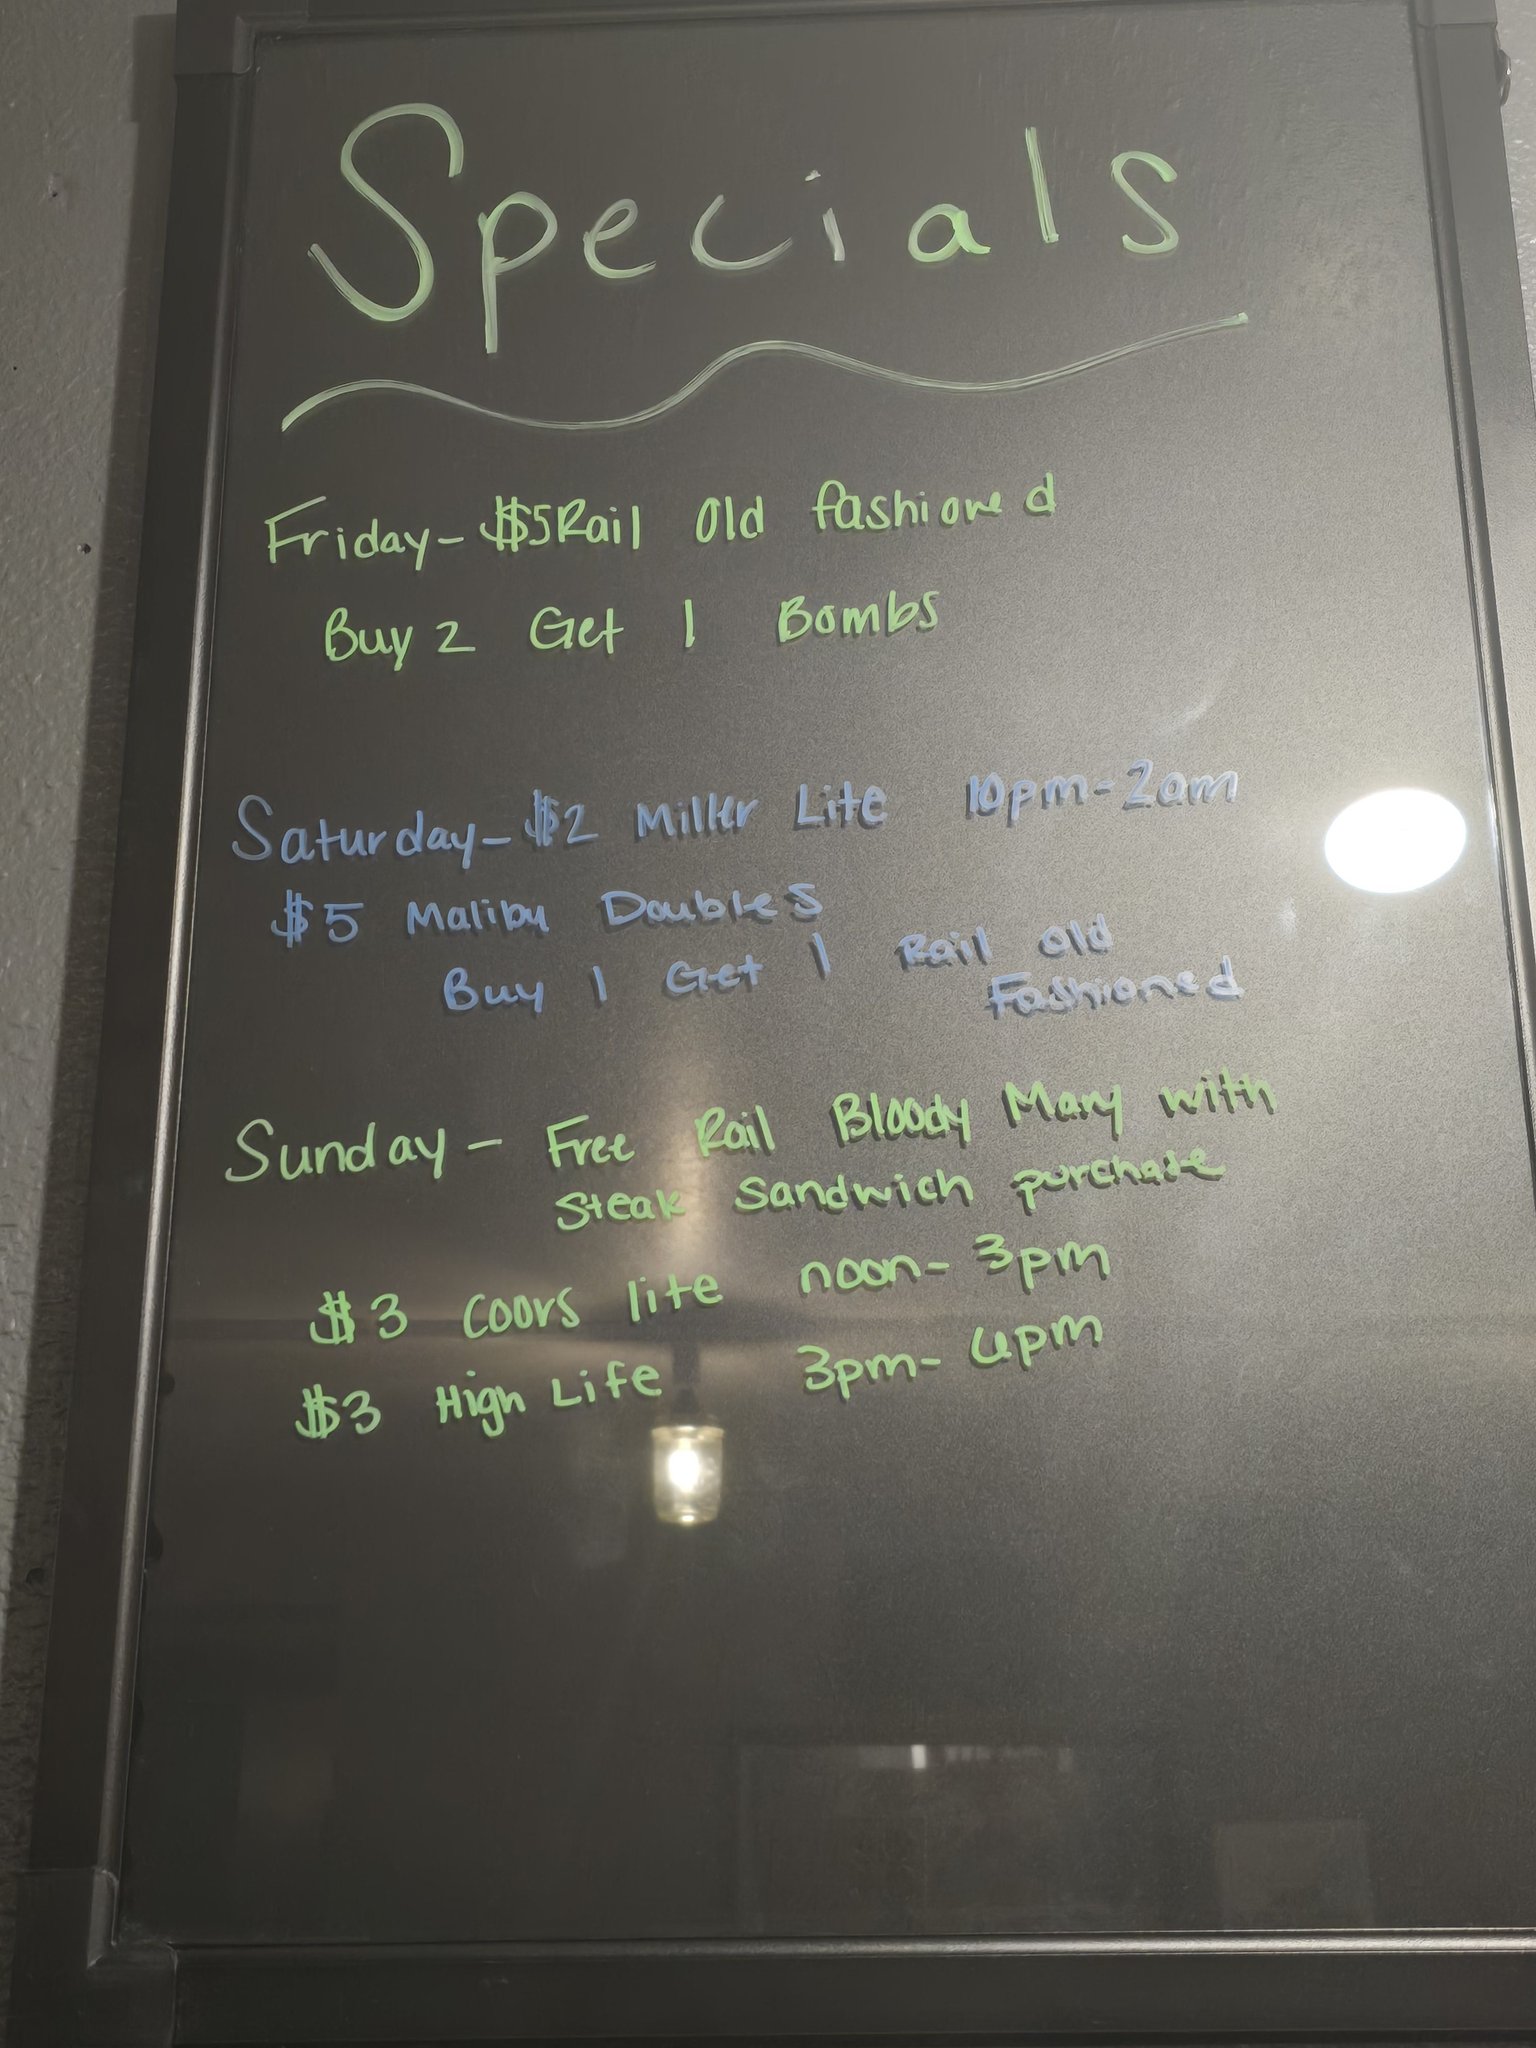 Specials
Friday - $5 Rail Old fashioned
Buy 2 Get 1 Bombs
Saturday - $2 Miller Lite 10pm-2am
$5 Malibu Doubles
Buy 1 Get 1 Rail Old
Fashioned
Sunday - Free Rail Bloody Mary with
Steak Sandwich purchase
$3 Coors lite noon-3pm
$3 High Life 3pm-6pm